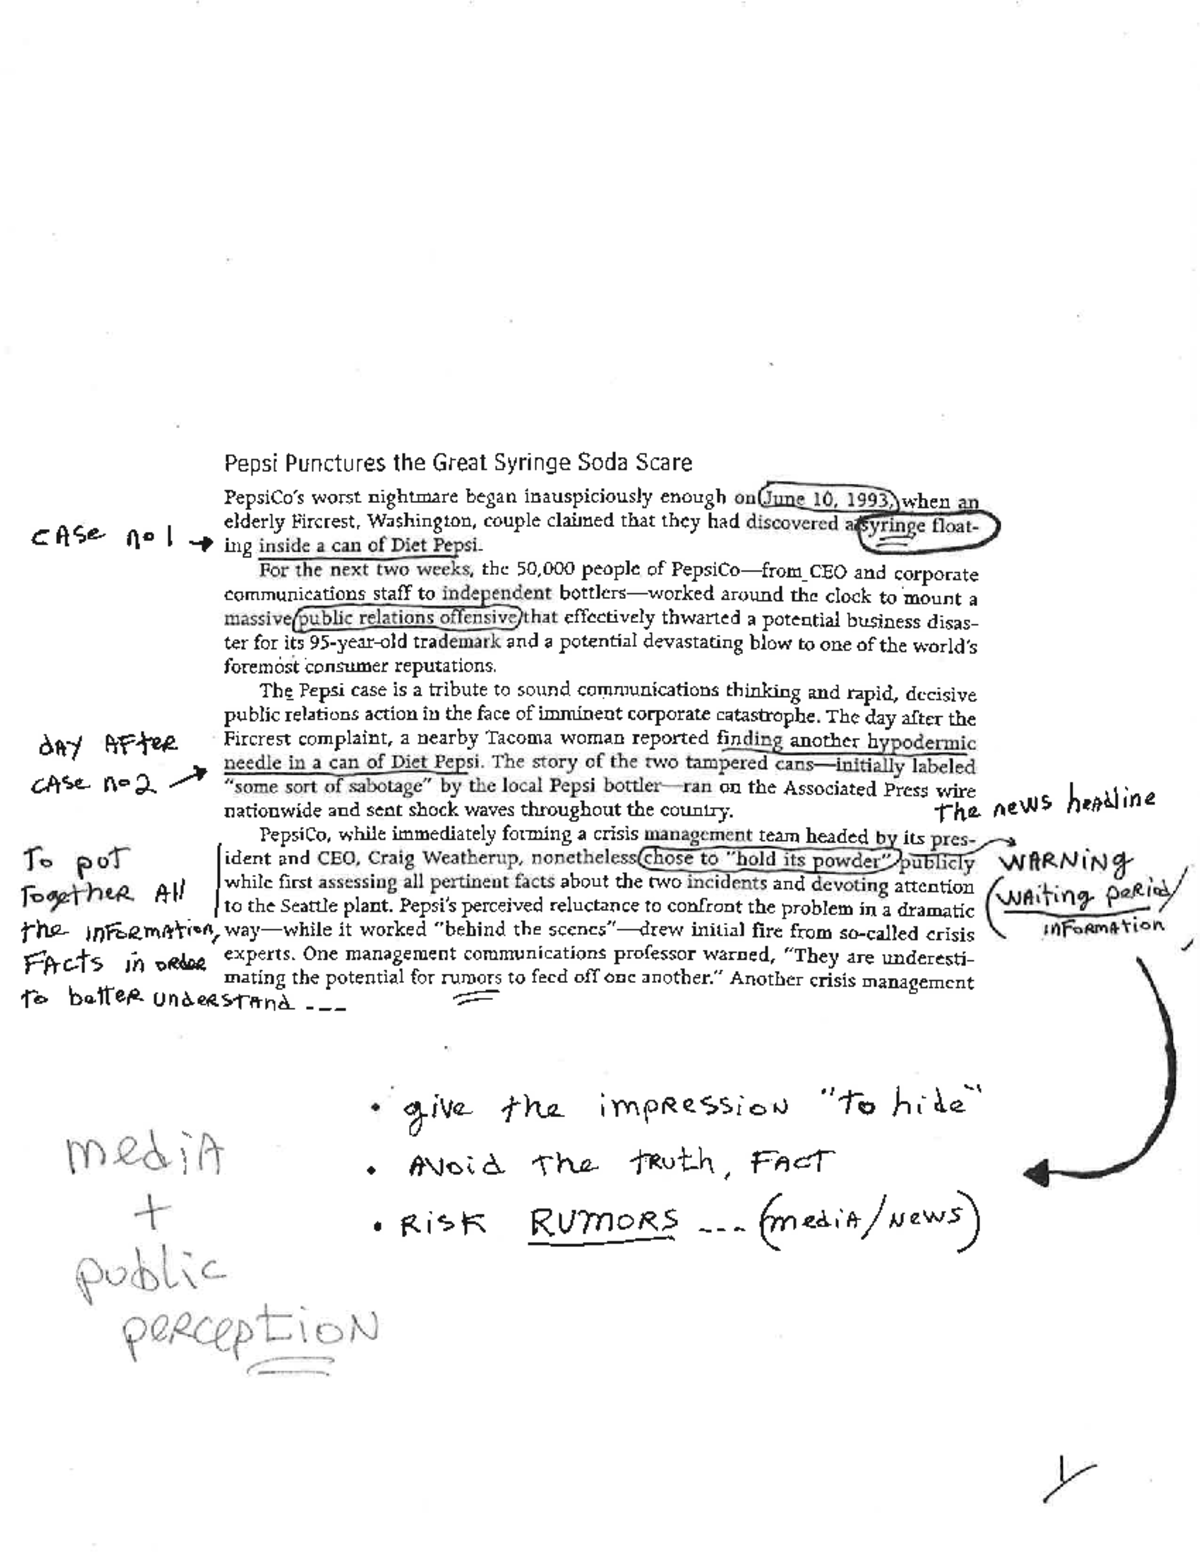 Pepsi Punctures the Great Syringe Soda Scare
PepsiCo's worst nightmare began inauspiciously enough on June 10, 1993, when an
elderly Fircrest, Washington, couple claimed that they had discovered a syringe float-
ing inside a can of Diet Pepsi.
CASE no 1
For the next two weeks, the 50,000 people of PepsiCo—from CEO and corporate
communications staff to independent bottlers—worked around the clock to mount a
massive public relations offensive that effectively thwarted a potential business disas-
ter for its 95-year-old trademark and a potential devastating blow to one of the world's
foremost consumer reputations.
The Pepsi case is a tribute to sound communications thinking and rapid, decisive
public relations action in the face of imminent corporate catastrophe. The day after the
Fircrest complaint, a nearby Tacoma woman reported finding another hypodermic
needle in a can of Diet Pepsi. The story of the two tampered cans—initially labeled
"some sort of sabotage" by the local Pepsi bottler—ran on the Associated Press wire
nationwide and sent shock waves throughout the country.
dAY AFter
CASE no 2
The news headline
PepsiCo, while immediately forming a crisis management team headed by its pres-
ident and CEO, Craig Weatherup, nonetheless chose to "hold its powder" publicly
while first assessing all pertinent facts about the two incidents and devoting attention
to the Seattle plant. Pepsi's perceived reluctance to confront the problem in a dramatic
way—while it worked "behind the scenes"—drew initial fire from so-called crisis
experts. One management communications professor warned, "They are underesti-
mating the potential for rumors to feed off one another." Another crisis management
To pot
Together All
the information,
FActs in order
to better understand ---
WARNING
(waiting period/
information
• give the impression "to hide"
• Avoid the truth, FACT
• Risk RUMORS --- (mediA/News)
mediA
+
public
perception
1